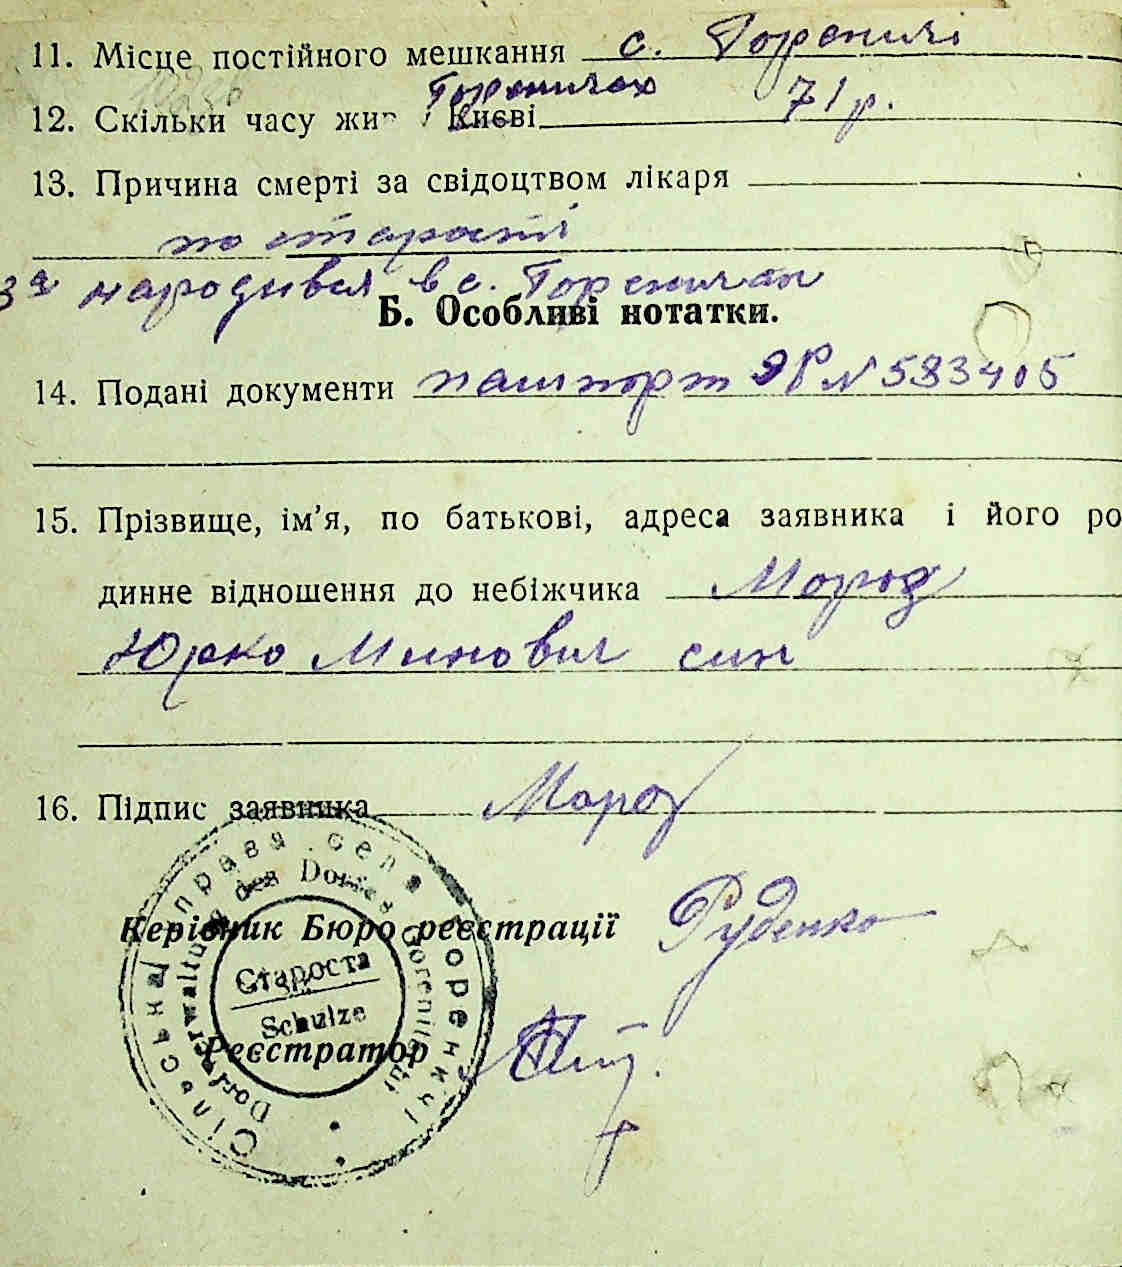 11. Місце постійного мешкання с. Гореничі
Гореничах
12. Скільки часу жив у Києві 71 р.
13. Причина смерті за свідоцтвом лікаря
по старості
за народився в с. Гореничах
Б. Особливі нотатки.
14. Подані документи пашпорт ЯР № 583405
15. Прізвище, ім’я, по батькові, адреса заявника і його ро
динне відношення до небіжчика Мороз
Юрко Минович син
16. Підпис заявника Мороз
Сільська управа села Гореничі
Dorfverwaltung des Dorfes Gorenitschi
Керівник Бюро реєстрації Руденко
Староста
Schulze
Реєстратор